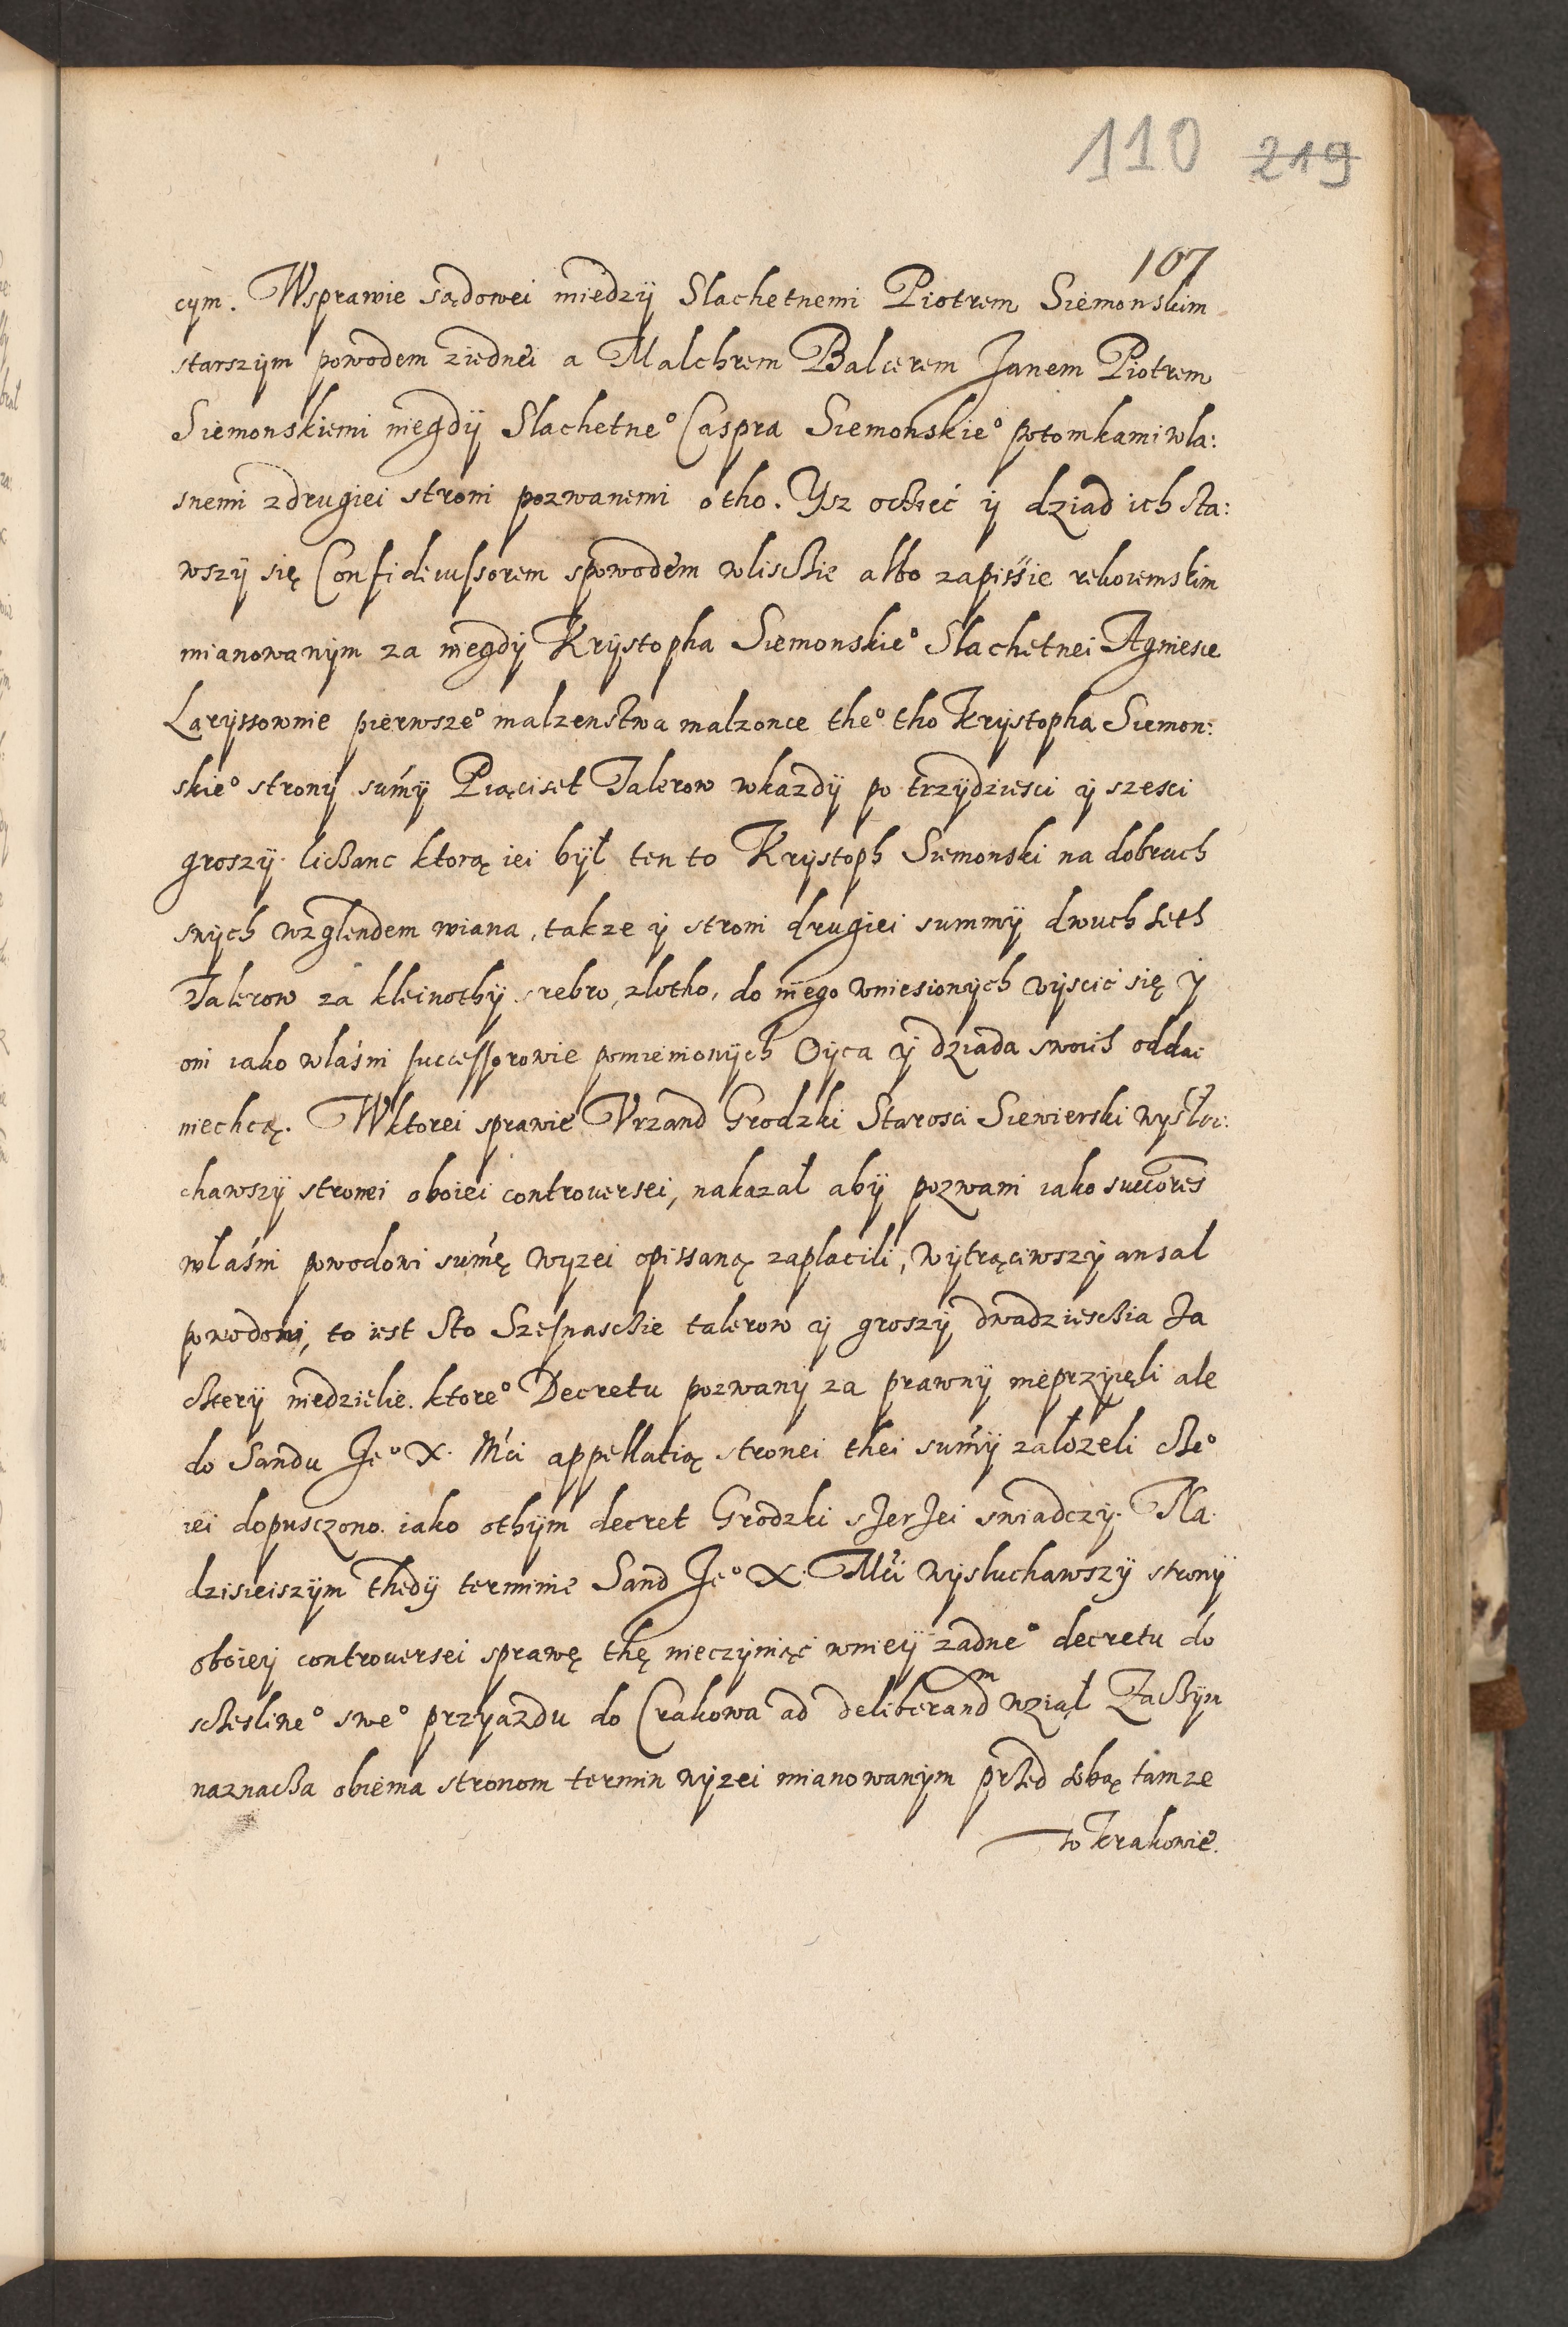 110 219
107
cym. Wsprawie sądowei miedzÿ Slachetnemi Piotrem Siemonskim
starszÿm powodem ziednei a Malchrem Balcerem Janem Piotrem
Siemonskiemi niegdÿ Slachetne° Caspra Siemonskie° potomkami wla:
snemi zdrugiei stroni pozwanemi otho. Ysz oczieć ÿ dziad ich sta:
wszÿ się Confideiussorem spowodem wliszie albo zapissie rekoiemskim
mianowanÿm za niegdÿ Krÿstopha Siemonskie° Slachetnei Agniesce
Larÿssownie pierwsze° malzenstwa malzonce the° tho Krÿstopha Siemon:
skie° stronÿ sum̃ÿ Piąciset Talerow wkazdÿ po trzÿdziesci ÿ szesci
groszÿ liczanc ktorą iei bÿł ten to Krÿstoph Siemonski na dobrach
swÿch wzglendem wiana, takze ÿ stroni drugiei summÿ dwuch seth
Talerow za kleinothÿ srebro, zlotho, do niego wniesionÿch wÿscić się ÿ
oni iako właśni successorowie pomienionÿch Oÿca ÿ dziada swoich oddac
niechcą. Wktorei sprawie Vrzand Grodzki Starosci Siewierski wÿsłu:
chawszÿ stronei oboiei controuersei, nakazał abÿ pozwani iako succores
właśni powodowi sum̃ę wyzei opissaną zaplacili, wÿtrąciwszÿ ansal
powodowi, to iest Sto Szesnaszie talerow ÿ groszÿ dwadzieszia za
czterÿ niedzielie. ktore° Decretu pozwanÿ za prawnÿ nieprzÿięli ale
do Sandu Je° X. Mći appellatią stronei thei sum̃ÿ założeli cze°
iei dopusczono. iako othÿm decret Grodzki szerzei swiadczÿ. Na
dzisieiszÿm thedÿ terminie Sand Je° X. Mći wÿsluchawszÿ stronÿ
oboieÿ controuersei sprawę thę nieczÿniąć wnieÿ zadne° decretu do
sczesliwe° swe° przÿazdu do Crakowa ad deliberand^m wział Zaczÿm
naznacza obiema stronom termin wÿzei mianowanÿm przed sobą tamze
w Krakowie.